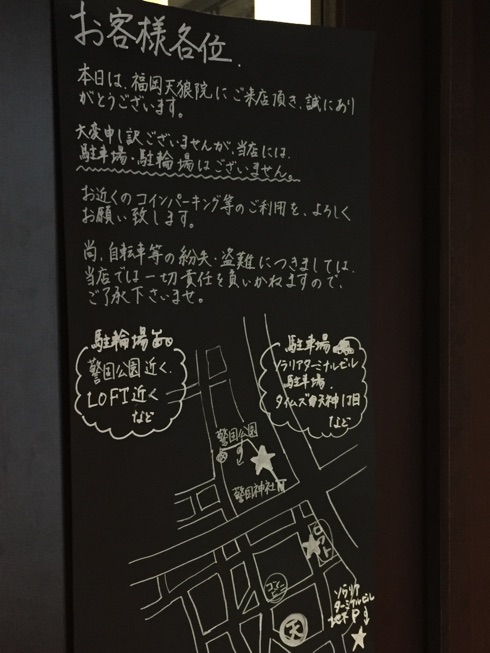 お客様各位.
本日は、福岡天狼院にご来店頂き、誠にあり
がとうございます。
大変申し訳ございませんが、当店には、
駐車場・駐輪場はございません。
お近くのコインパーキング等のご利用を、よろしく
お願い致します。
尚、自転車等の紛失・盗難につきましては、
当店では一切責任を負いかねますので、
ご了承下さいませ。
駐輪場
警固公園近く.
LOFT近く
など
駐車場
ソラリアターミナルビル
駐車場.
タイムズ天神1丁目
など
警固公園
警固神社
ロフト
天
ソラリア
ターミナルビル
地下P